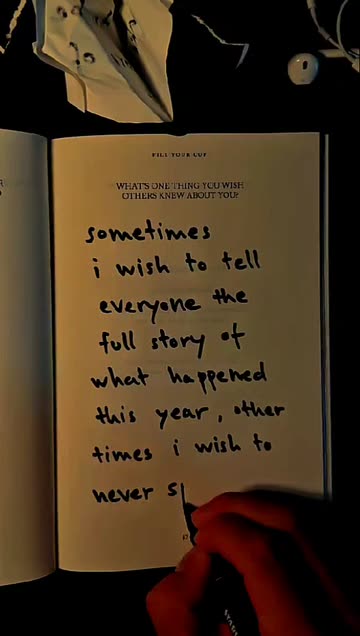 FILL YOUR CUP
WHAT'S ONE THING YOU WISH
OTHERS KNEW ABOUT YOU?
sometimes
i wish to tell
everyone the
full story of
what happened
this year, other
times i wish to
never s